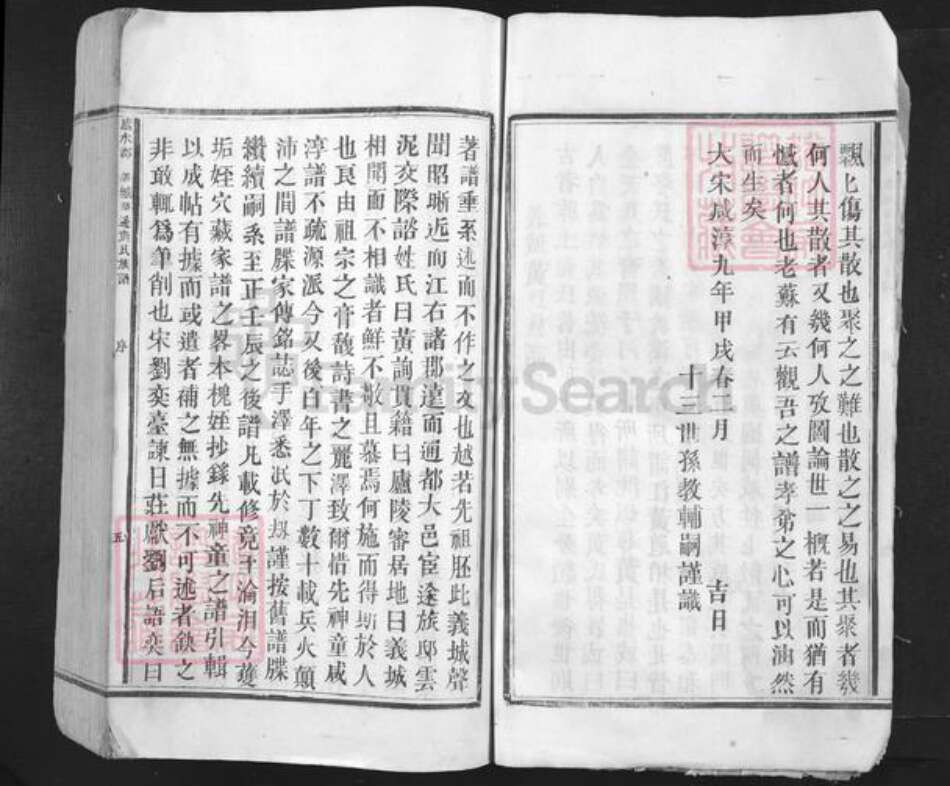 飄七傷其散也聚之之難也散之之易也其聚者幾
何人其散者又幾何人攷圖論世一槪若是而猶有
憾者何也老蘇有云觀吾之譜孝弟之心可以油然
而生矣
大宋咸淳九年甲戌春二月　吉日
十三世孫教輔嗣謹識
著譜垂系述而不作之攷也越若先祖胚此義城聲
聞昭晰近而江右諸郡遠而通都大邑宦逵族邸雲
泥交際諮姓氏曰黃詢貫籍曰廬陵審居地曰義城
相聞而不相識者鮮不敬且慕焉何施而得斯於人
也良由祖宗之膏馥詩書之麗澤致衕惜先神童咸
淳譜不疏源派今又後百年之下丁數十載兵火顛
沛之間譜牒家傳銘誌手澤悉泯於刼謹按舊譜牒
纘續嗣系至正壬辰之後譜凡載修竟于淪沮今蒦
垢姪穴藏家譜之畧本槐姪抄錄先神童之譜引輯
以成帖有據而或遺者補之無據而不可述者缺之
非敢輒爲筆削也宋劉奕臺諫日莊獻劉后語奕曰
族譜
序
五
FamilySearch